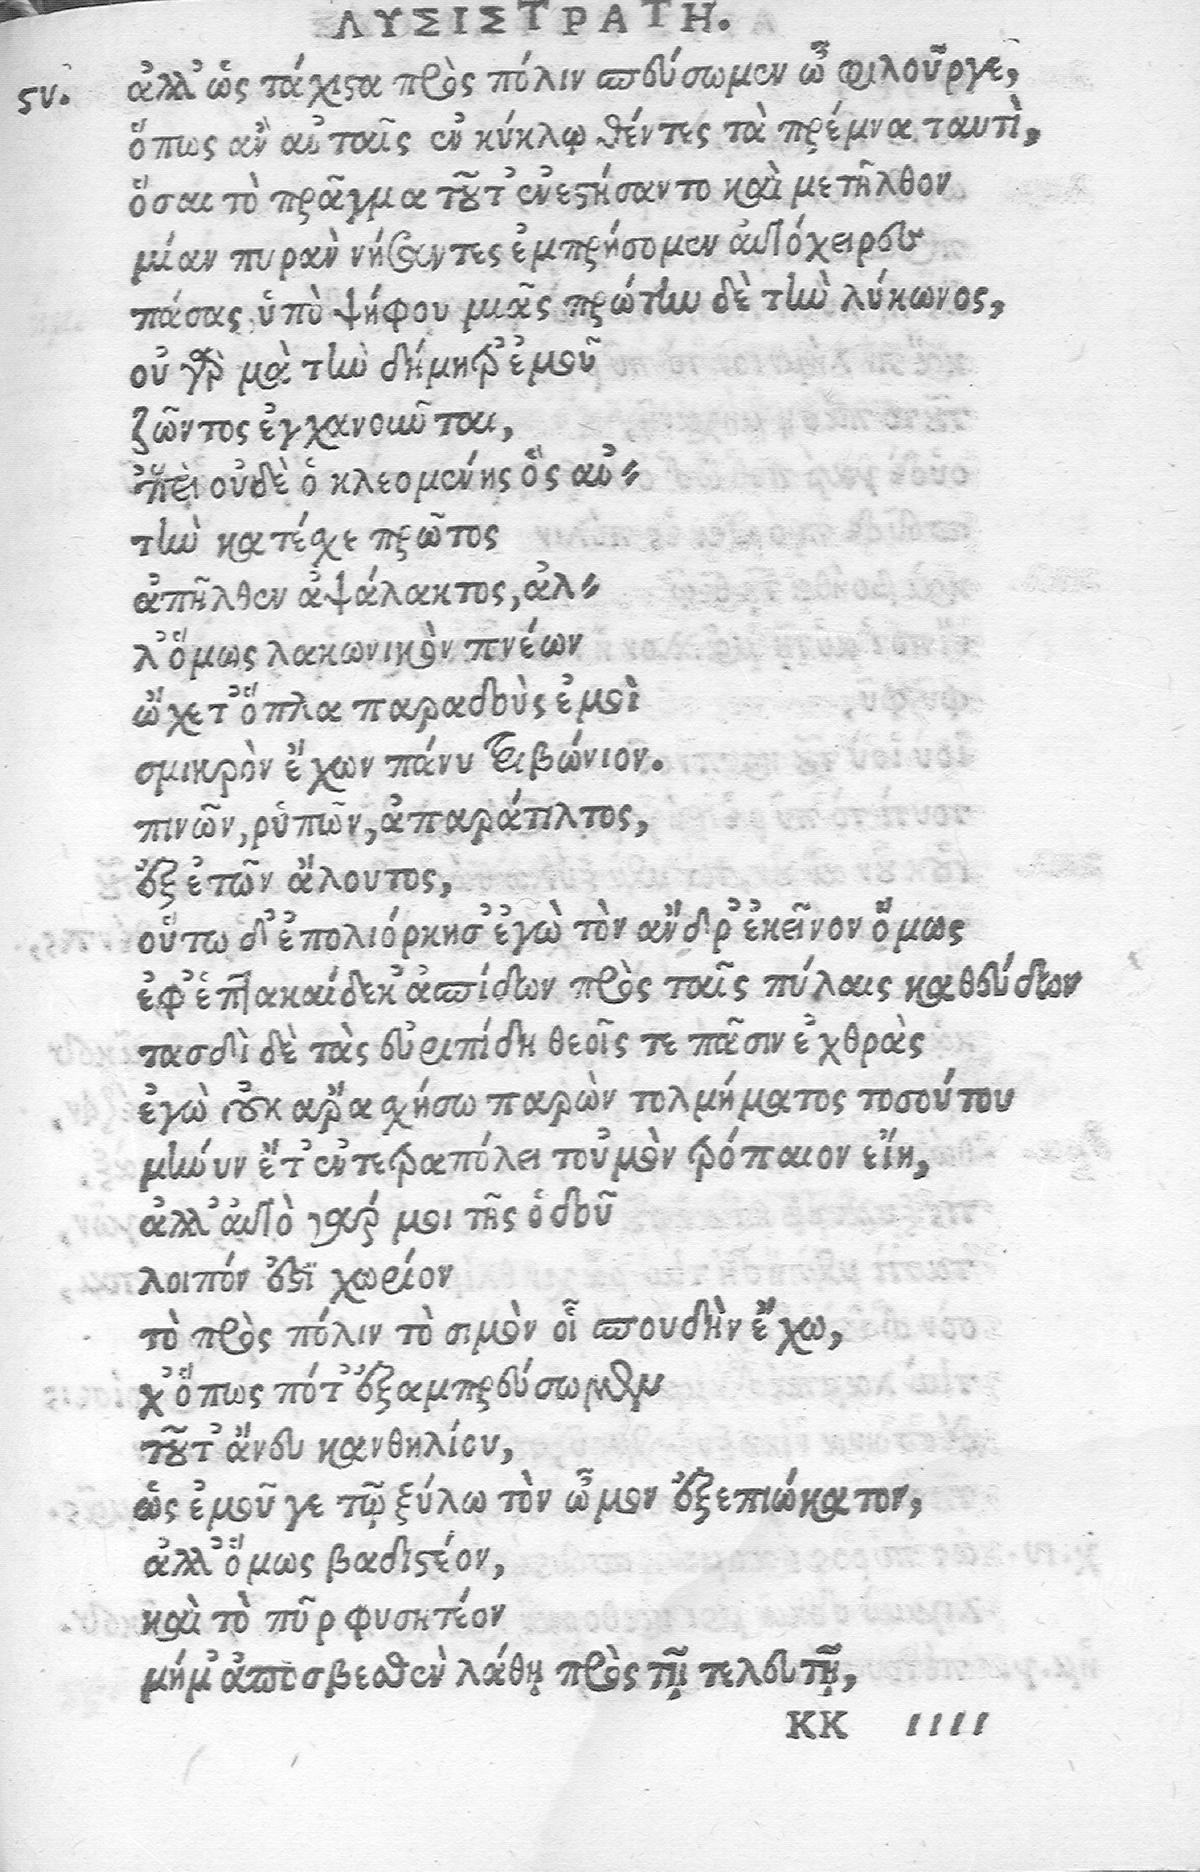 ΛΥΣΙΣΤΡΑΤΗ.
ϛυ. ἀλλ' ὡς τάχιϛα πρὸς πόλιν σπεύσωμεν ὦ φιλοῦργε,
ὅπως ἂν αὐταῖς ἐν κύκλῳ θέντες τὰ πρέμνα ταυτὶ,
ὅσαι τὸ πρᾶγμα τοῦτ' ἐνεϛήσαντο καὶ μετῆλθον
μίαν πυρὰν νήσαντες ἐμπρήσομεν αὐτόχειρες
πάσας ὑπὸ ψήφου μιᾶς πρώτην δὲ τὴν λύκωνος,
οὐ γὰρ μὰ τὴν δήμητρ' ἐμοῦ
ζῶντος ἐγχανοῦνται,
ἐπεὶ οὐδὲ ὁ κλεομένης ὃς αὐ-
τὴν κατέσχε πρῶτος
ἀπῆλθεν ἀψάλακτος, ἀλ-
λ' ὅμως λακωνικὸν πνέων
ᾤχετ' ὅπλα παραδοὺς ἐμοὶ
σμικρὸν ἔχων πάνυ τριβώνιον.
πινῶν, ῥυπῶν, ἀπαράτιλτος,
ἓξ ἐτῶν ἄλουτος,
οὕτω δ' ἐπολιόρκησ' ἐγὼ τὸν ἄνδρ' ἐκεῖνον ὅμως
ἐφ' ἑπτακαίδεκ' ἀσπίδων πρὸς ταῖς πύλαις καθεύδων
τασδὶ δὲ τὰς εὐριπίδη θεοῖς τε πᾶσιν ἐχθρὰς
ἐγὼ οὐκ ἄρα σχήσω παρὼν τολμήματος τοσούτου
μὴ νυν ἔτ' ἐν τετραπόλει τοὐμὸν τρόπαιον εἴη,
ἀλλ' αὐτὸ γάρ μοι τῆς ὁδοῦ
λοιπόν ἐϛὶ χωρίον
τὸ πρὸς πόλιν τὸ σιμὸν οἷ σπουδὴν ἔχω,
χ' ὅπως πότ' ἐξαμπρεύσωμεν
τοῦτ' ἄνευ κανθηλίου,
ὡς ἐμοῦ γε τῷ ξύλω τὸν ὦμον ἐξεπιώκατον,
ἀλλ' ὅμως βαδιϛέον,
καὶ τὸ πῦρ φυσητέον
μή μ' ἀποσβεσθὲν λάθῃ πρὸς τῇ τελευτῇ,
ΚΚ ıııı